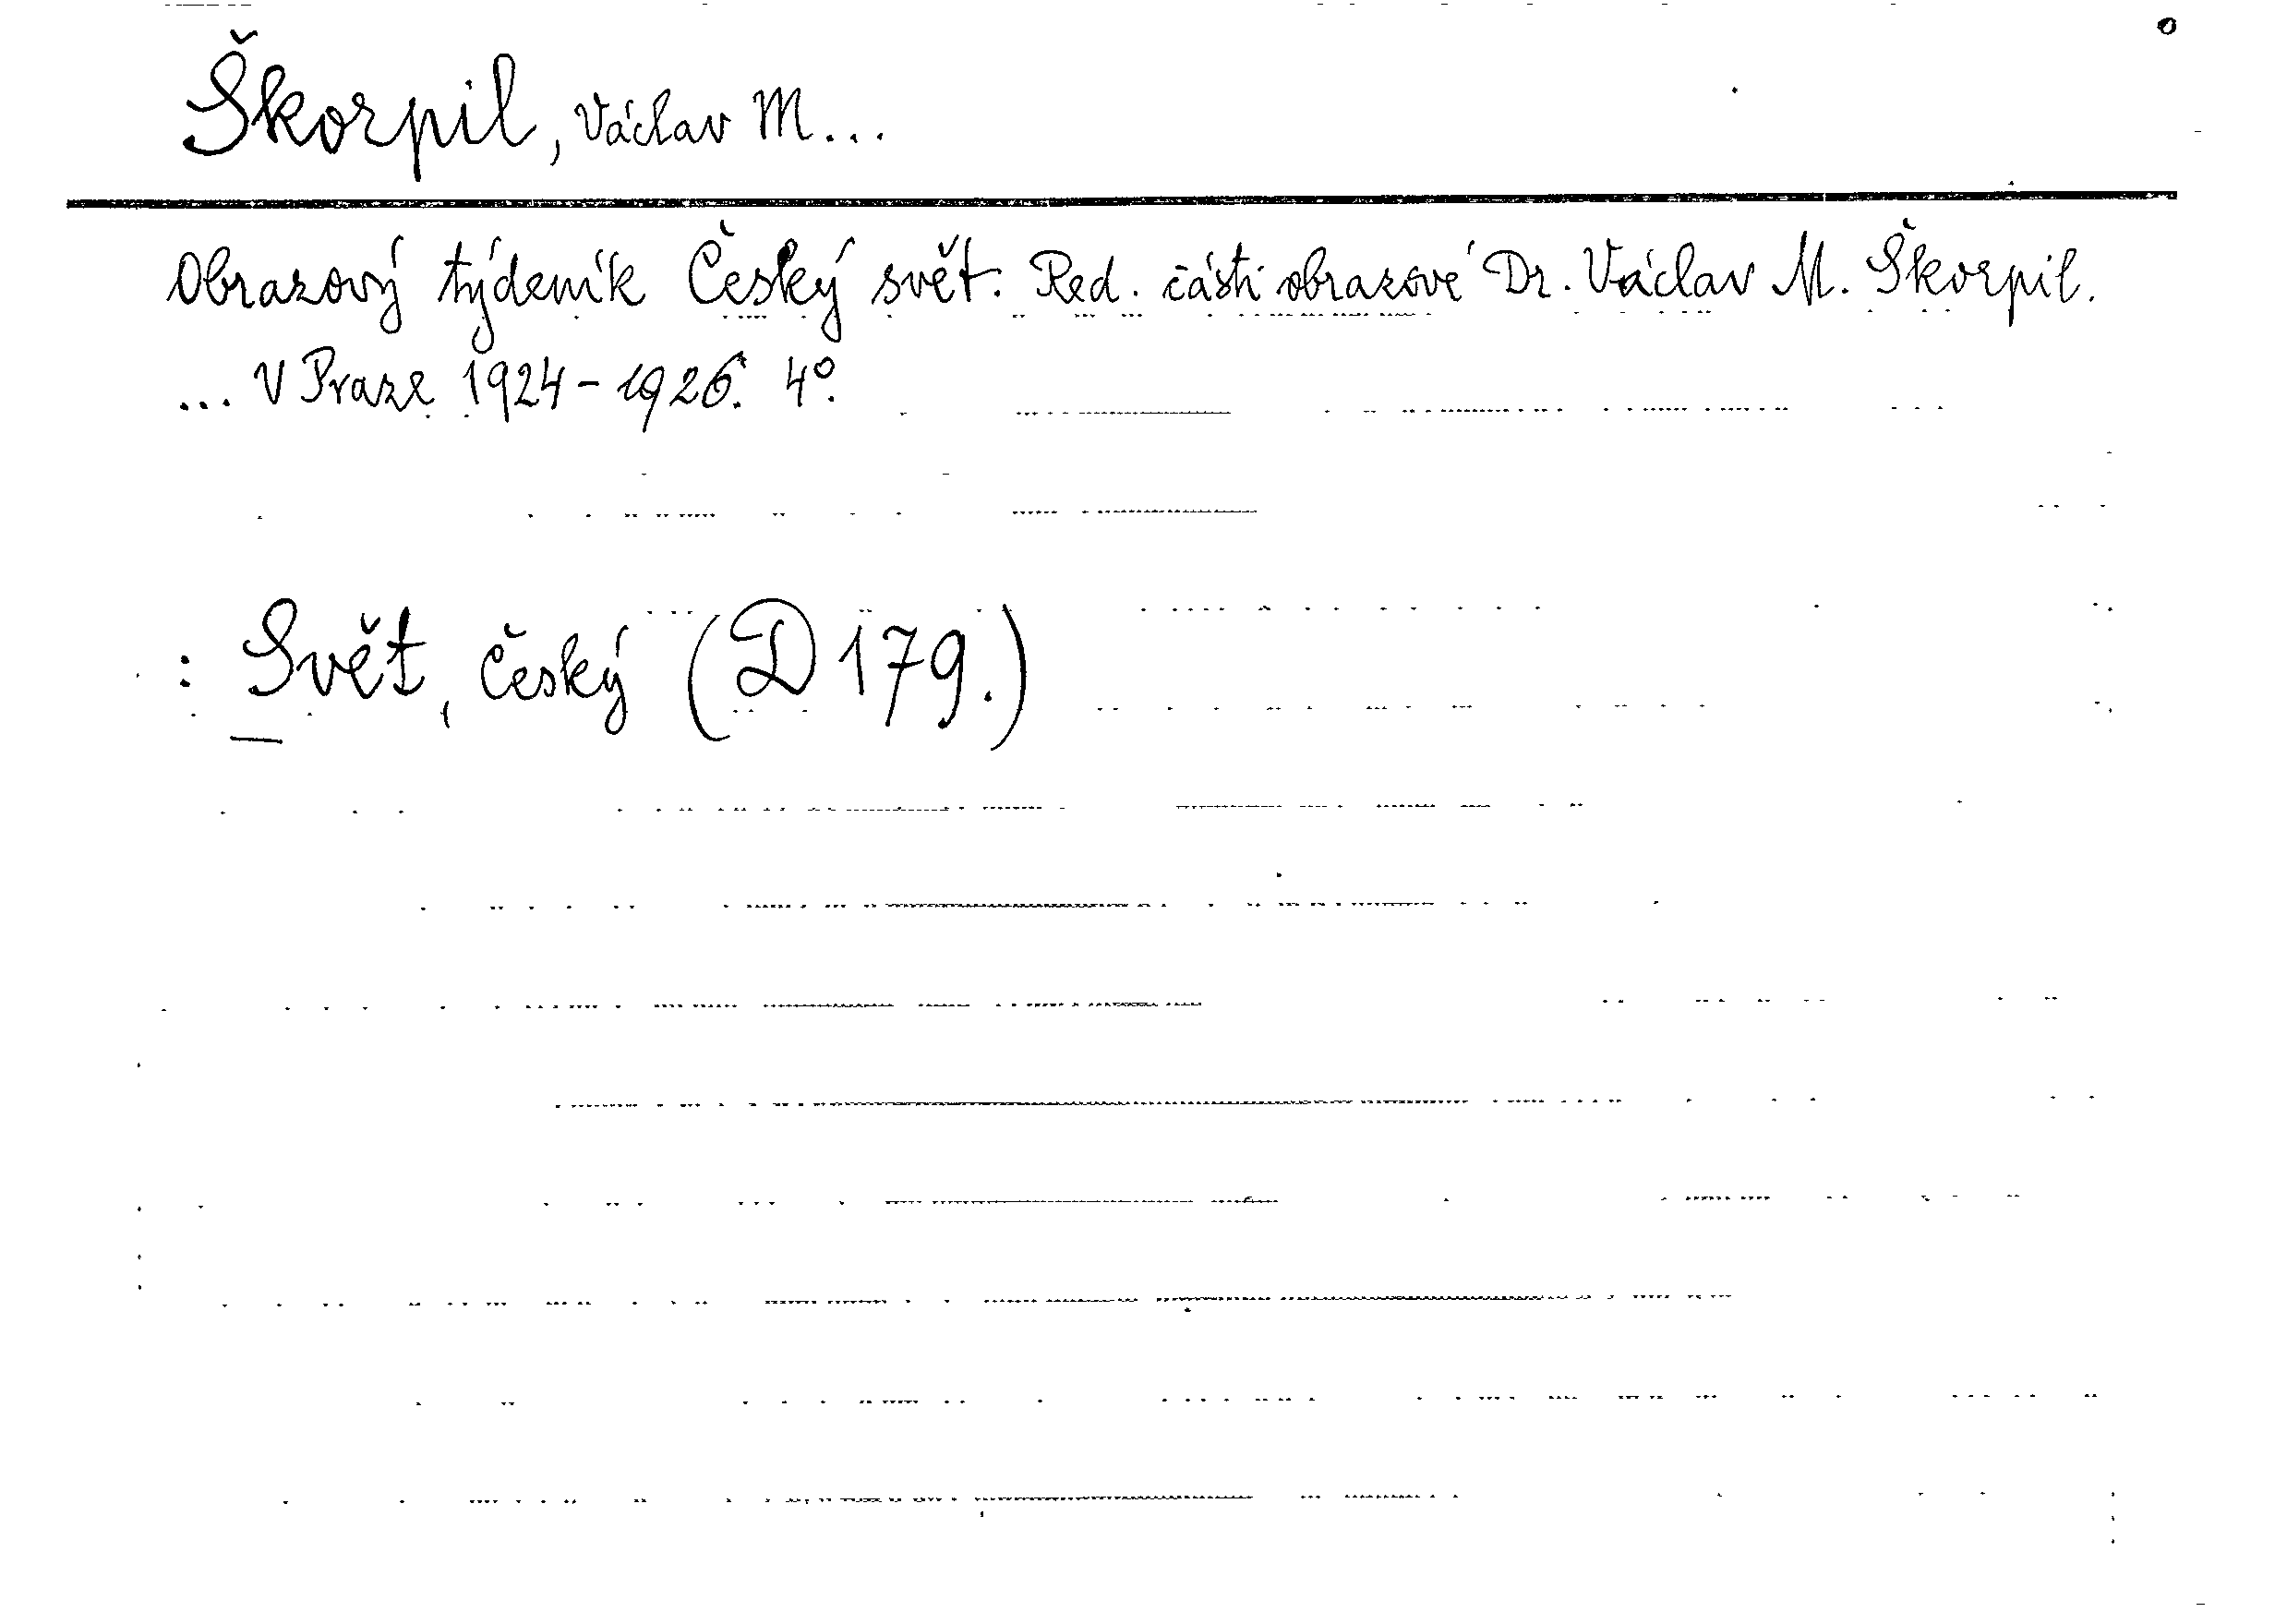 Škorpil, Václav M...
Obrazový týdeník Český svět. Red. části obrazové Dr. Václav M. Škorpil.
... V Praze 1924-1926. 4º.
: Svět, český (D 179.)